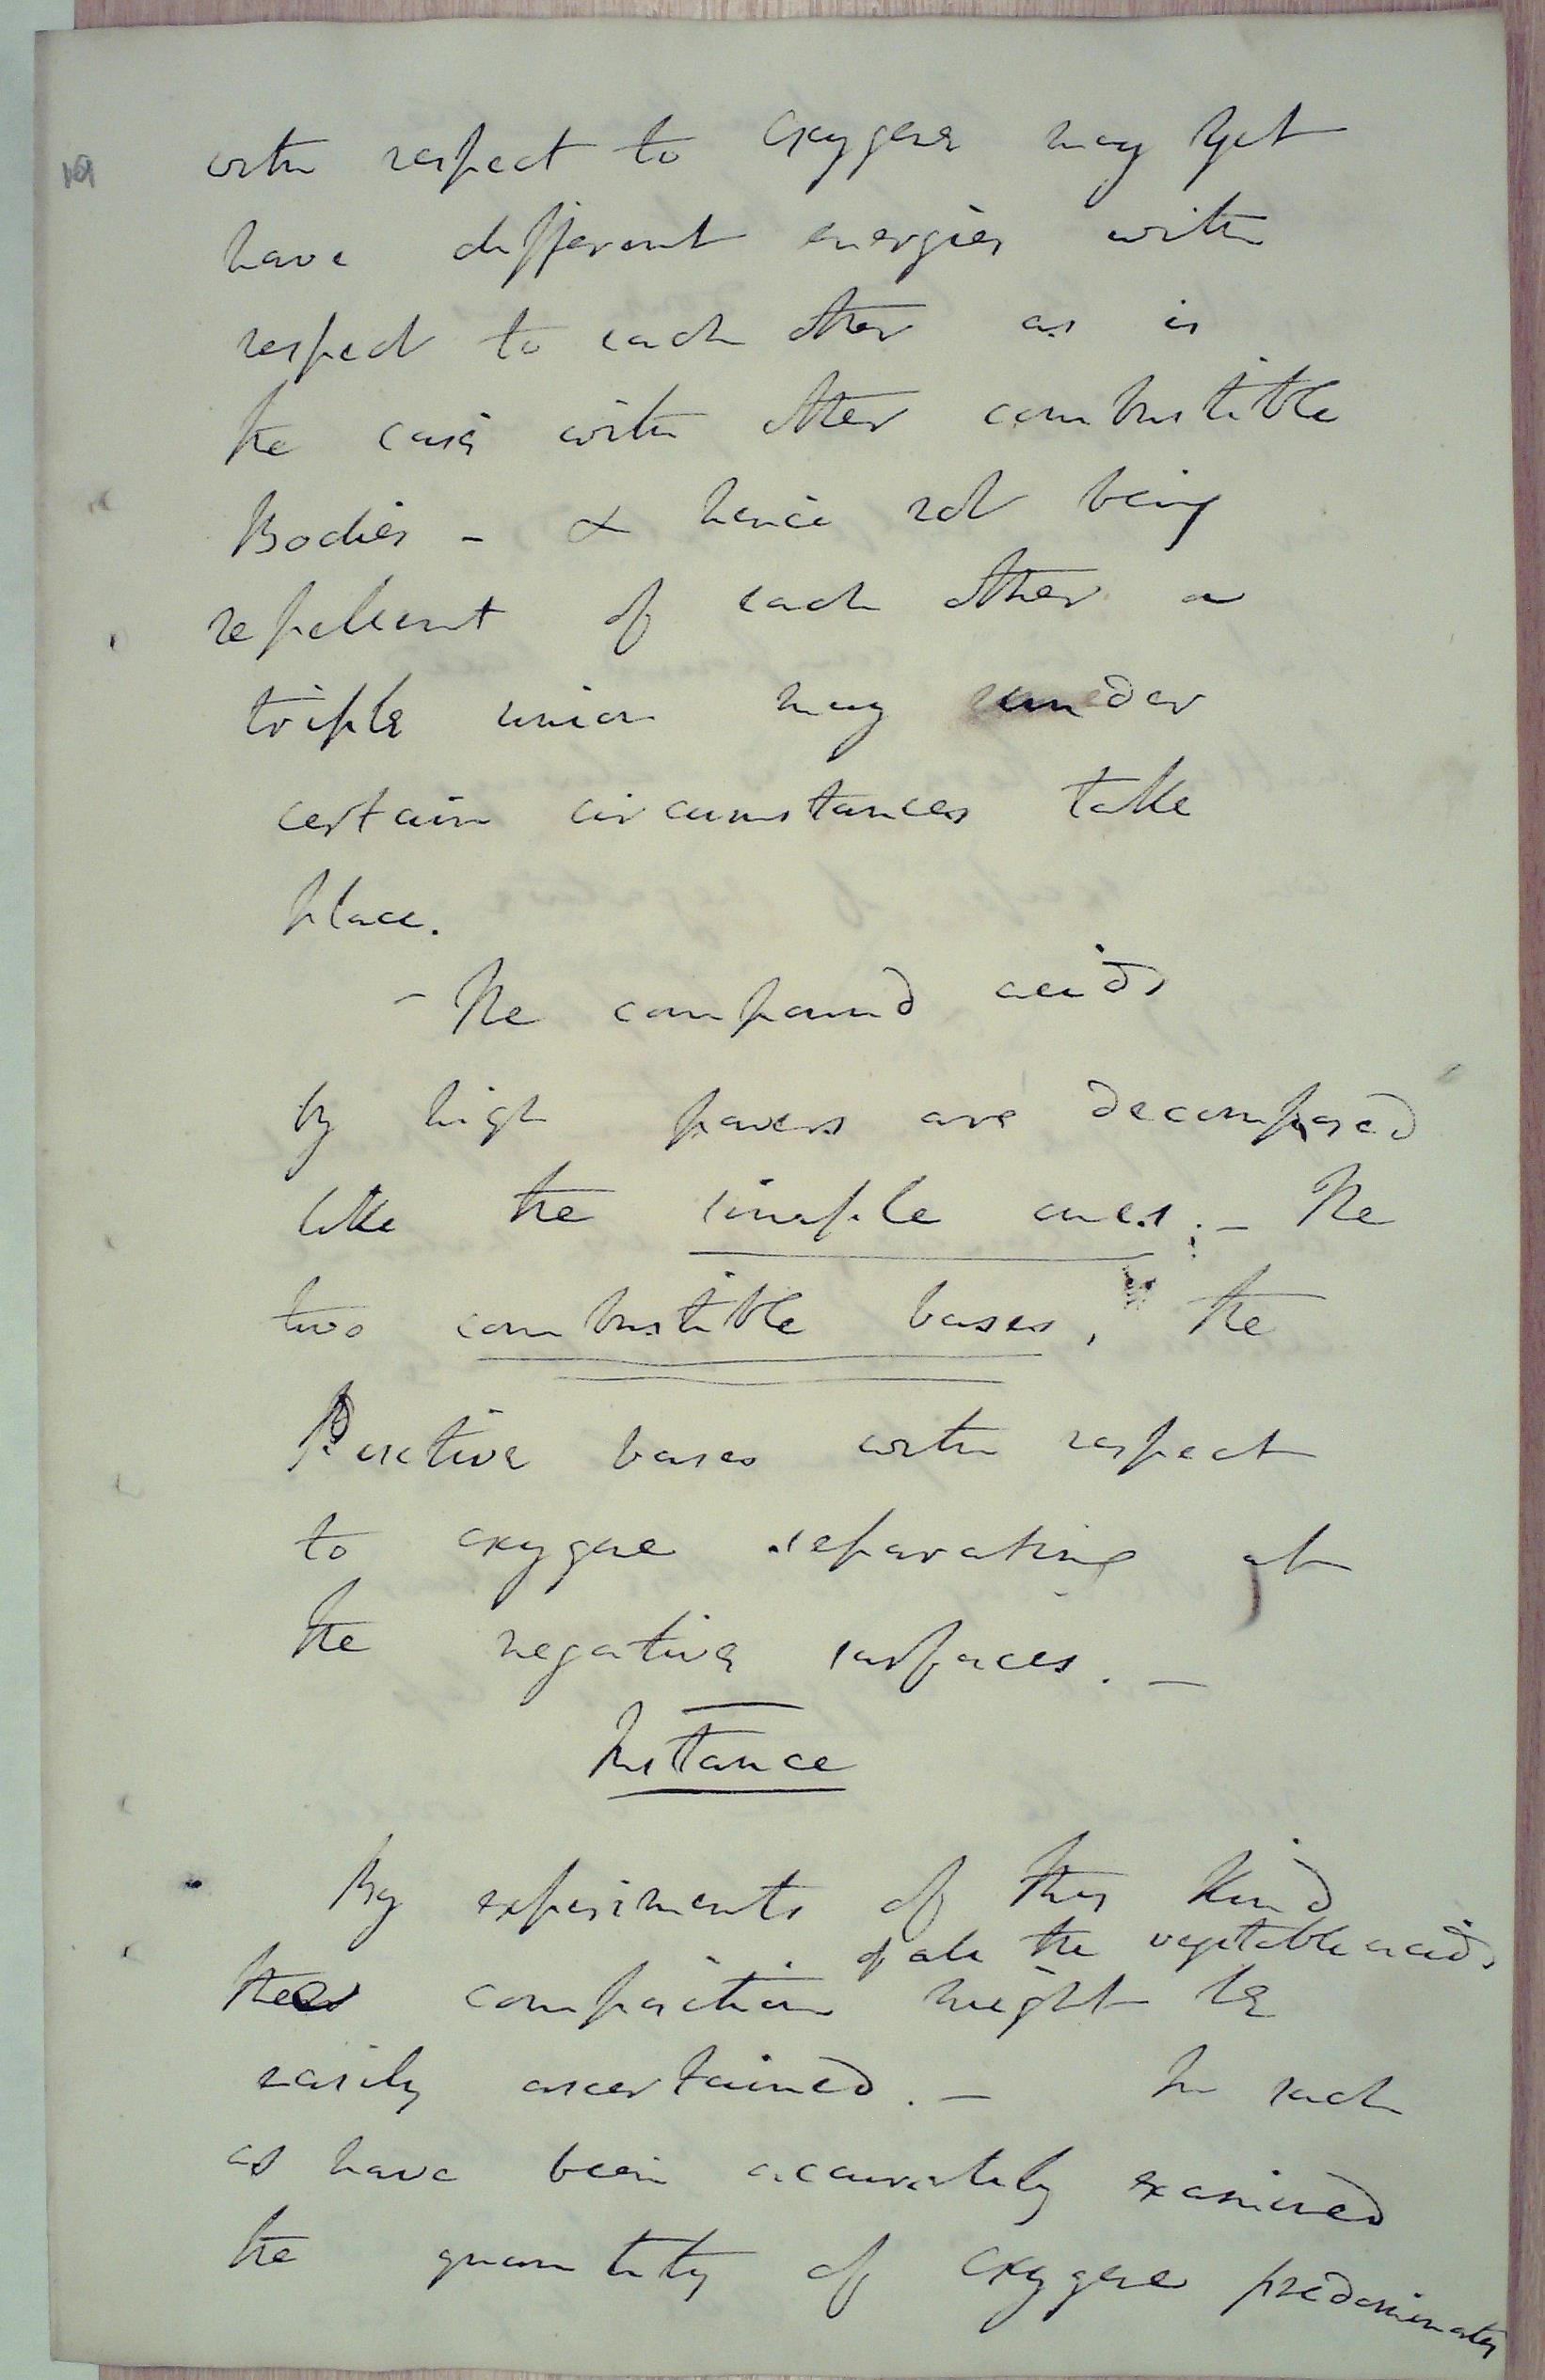 with respect to oxygene may yet
have different energies with
respect to each other as is
the case with other combustible
Bodies - & hence not being
repellent of each other a
triple union may under
certain circumstances take
place.
- The compound acids
by high powers are decomposed
like the simple ones; - The
two combustible bases, the
Positive bases with respect
to oxygene separating at
the negative surfaces. -
Instance
By experiments of this kind
of all the vegetable acids
the composition might be
easily ascertained. - In such
as have been accurately examined
the quantity of oxygene predominates